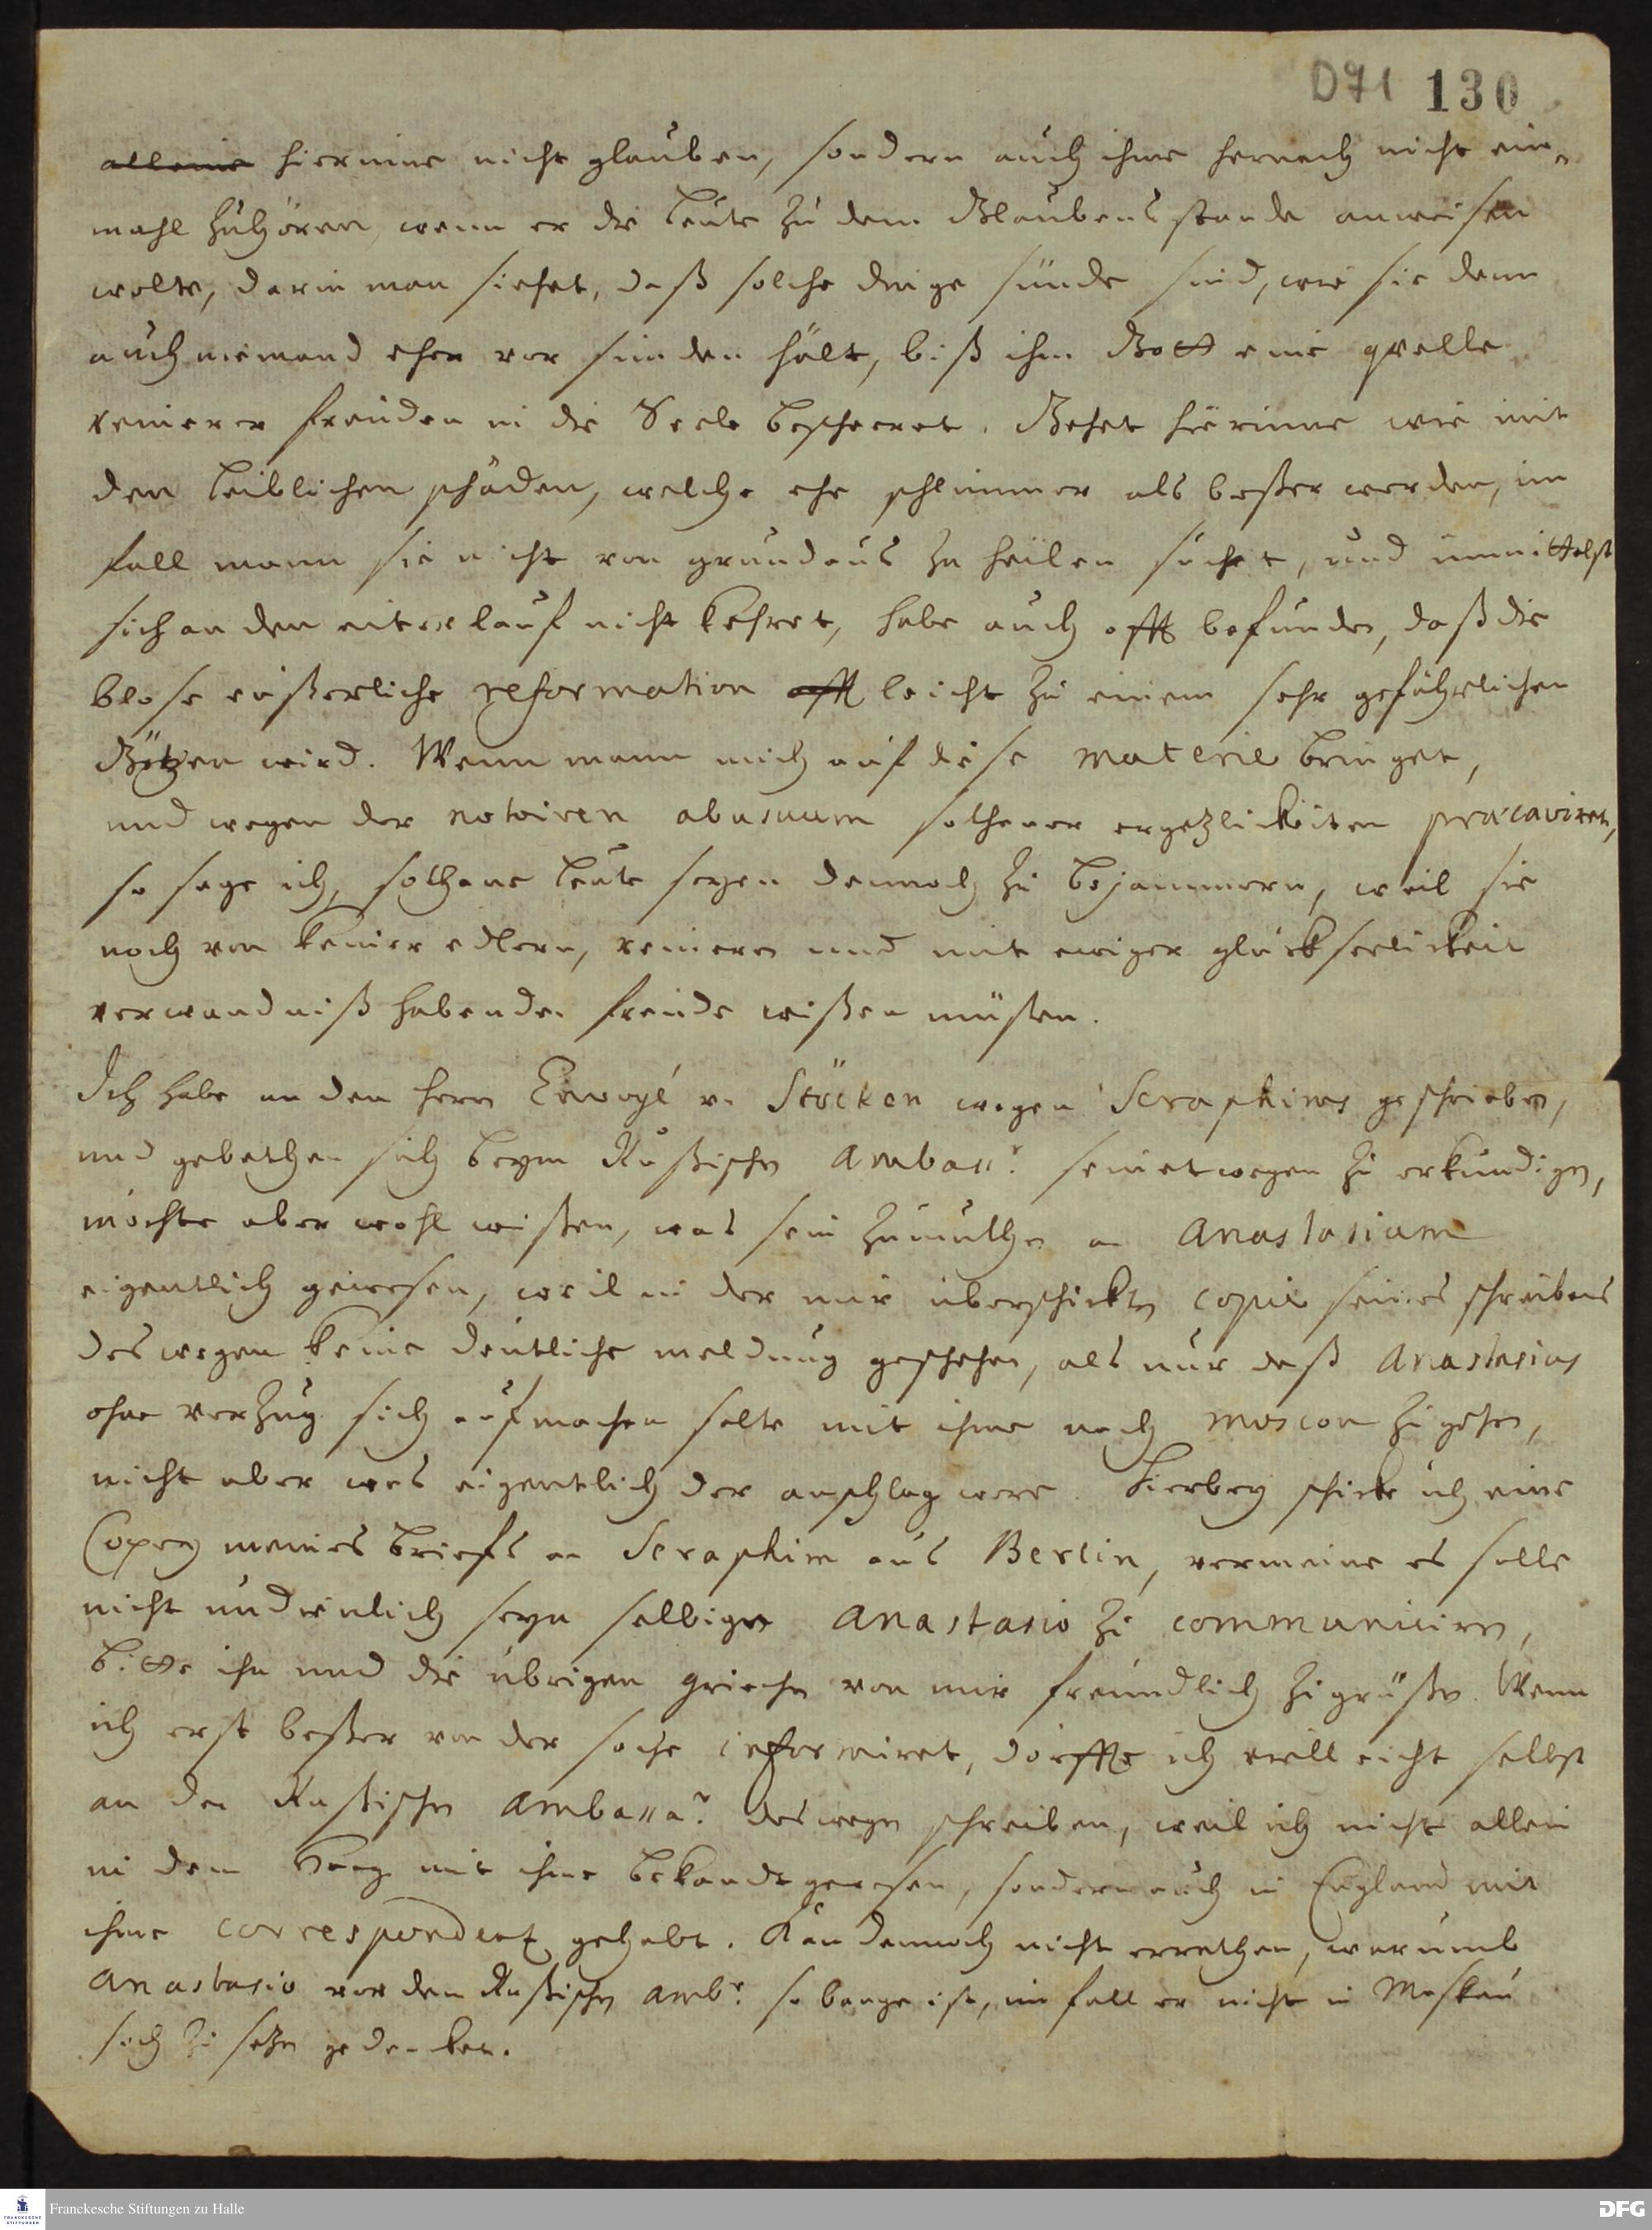 D71 130
alleine hierinne nicht glauben, sondern auch ihme hernach nicht ein-
mahl zuhören, wenn er die Leute zu dem Glaubensstande anweisen
wolte, darin man siehet, daß solche dinge sünde sind, wie sie denn
auch niemand eher vor sünden hält, biß ihm Gott eine quelle
reinerer freuden in die Seele bescheeret. Gehet hierinne wie mit
den leiblichen schäden, welche ehe schlimmer als beßer werden, im
fall mann sie nicht von grundaus zu heilen suchet, und immittelst
sich an den eiterlauf nicht kehret, habe auch offt befunden, daß die
blose eußerliche reformation offt leicht zu einem sehr gefährlichen
Götzen wird. Wenn mann mich auf diese materie bringet,
und wegen der notoiren abusuum solcherer ergetzlichkeiten praecaviret,
so sage ich, solhane leute seyen dennoch zu bejammern, weil sie
noch von keiner edlern, reinern und mit ewiger glückseelickeit
verwandniß habenden freude wißen müsten.
Ich habe an den herrn Envoyé v. Stöcken wegen Seraphims geschrieben,
und gebethen sich beym Rußischen Ambass.r seinetwegen zu erkundigen,
möchte aber wohl wißen, was sein zumuthen an Anastasium
eigentlich gewesen, weil in der mir überschickten copie seines schreibens
deswegen keine deutliche meldung geschehen, als nur daß Anastasius
ohne verzug sich aufmachen solte mit ihme nach Moscou zu gehen,
nicht aber was eigentlich der anschlag were. Hierbey schicke ich eine
Copey meines briefs an Seraphim aus Berlin, vermeine es solle
nicht undienlich seyn selbigen Anastasio zu communiciren,
bitte ihn und die übrigen Griechen von mir freundlich zu grüßen. Wenn
ich erst beßer von der sache informiret, dörffte ich vielleicht selbst
an den Rußischen Ambassa.r deswegen schreiben, weil ich nicht allein
in dem Haag mit ihme bekandt gewesen, sondern auch in England mit
ihme correspondentz gehabt. Kan dennoch nicht errathen, warumb
Anastasio vor den Rußischen Amb.r so bange ist, im fall er nicht in Moskau
sich zu setzen gedencket.
Franckesche Stiftungen zu Halle
FRANCKESCHE STIFTUNGEN
DFG